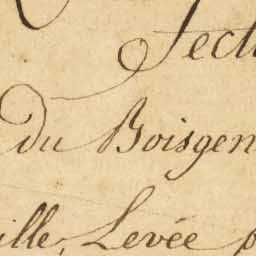 Sect
du Boisgen
ille, Levée p